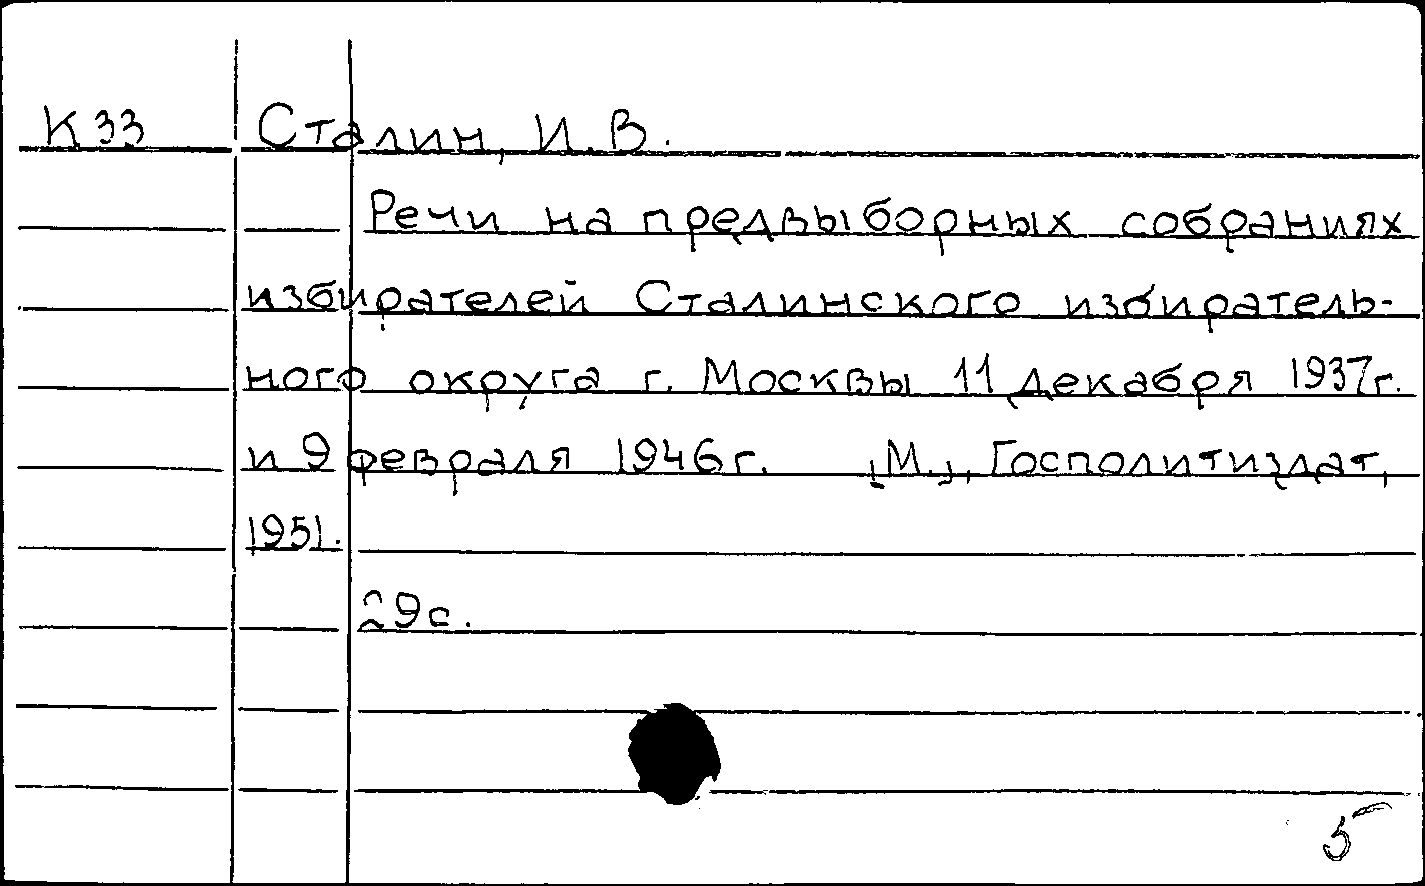 К 33 Сталин, И.В.
Речи на предвыборных собраниях
избирателей Сталинского избиратель-
ного округа г. Москвы 11 декабря 1937г.
и 9 февраля 1946г. [М.], Госполитиздат,
1951.
29с.
5